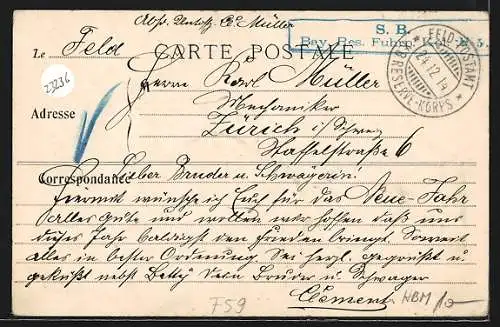 Abs. Untoffz. Cl. Müller
S. B.
Bay. Res. Fuhrp. Kol. № 5.
Le Feld
CARTE POSTALE
FELD-POSTAMT
24.12.14
RESERVE-KORPS
23236
Herrn Karl Müller
Mechaniker
Adresse
Zürich i/ Schweiz
Staffelstraße 6
Correspondance
Lieber Bruder u. Schwägerin!
Hiermit wünsche ich Euch für das Neue-Jahr
alles gute und wollen wir hoffen daß uns
dieses Jahr baldigst den Frieden bringt. Soweit
alles in bester Ordnung. Sei herzl. gegrüßt u.
geküßt nebst Betty dein Bruder u. Schwager
Clement
F59
WBM